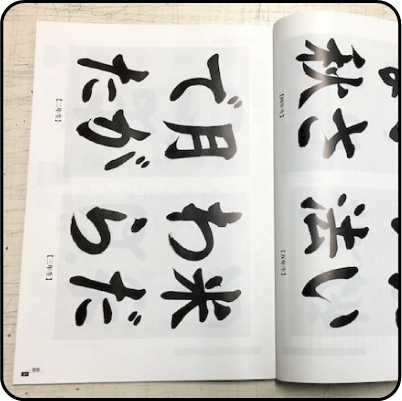 い
法
【五年生】
さ
秋
【四年生】
米だ
わら
【三年生】
月が
でた
【二年生】